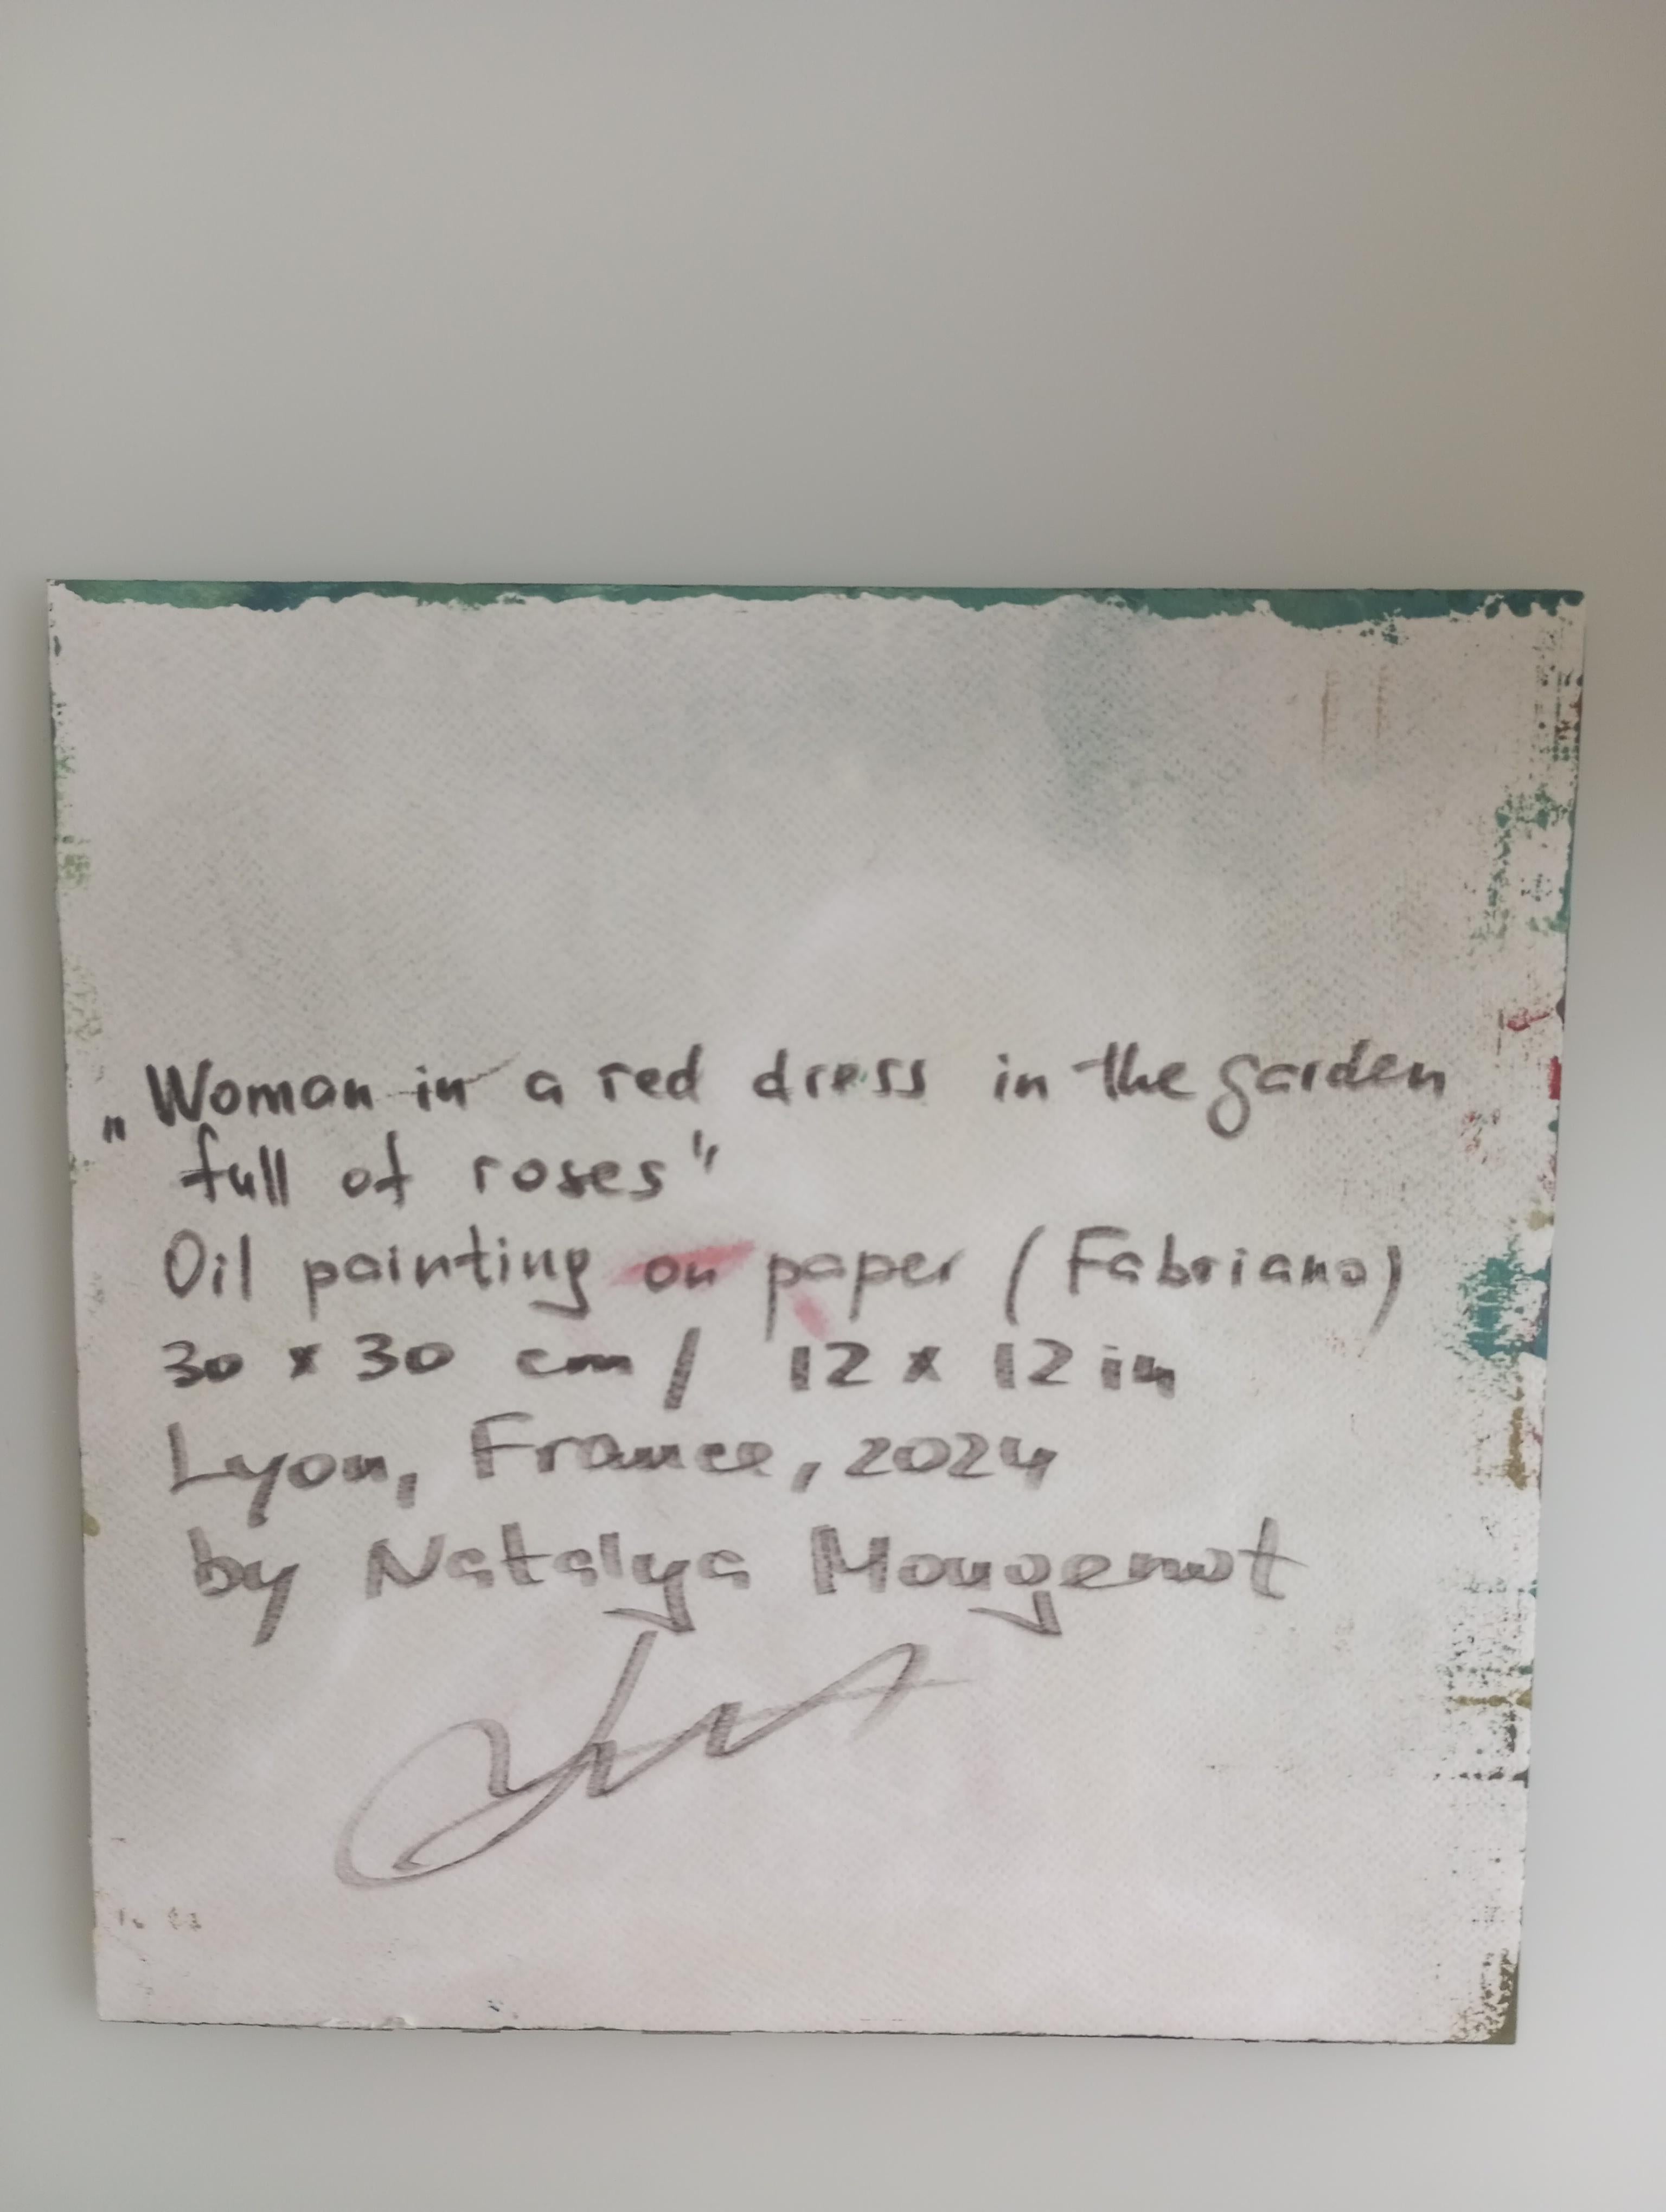 „Woman in a red dress in the garden
full of roses"
Oil painting on paper (Fabriano)
30 x 30 cm / 12 x 12 in
Lyon, France, 2024
by Natalya Mougenot